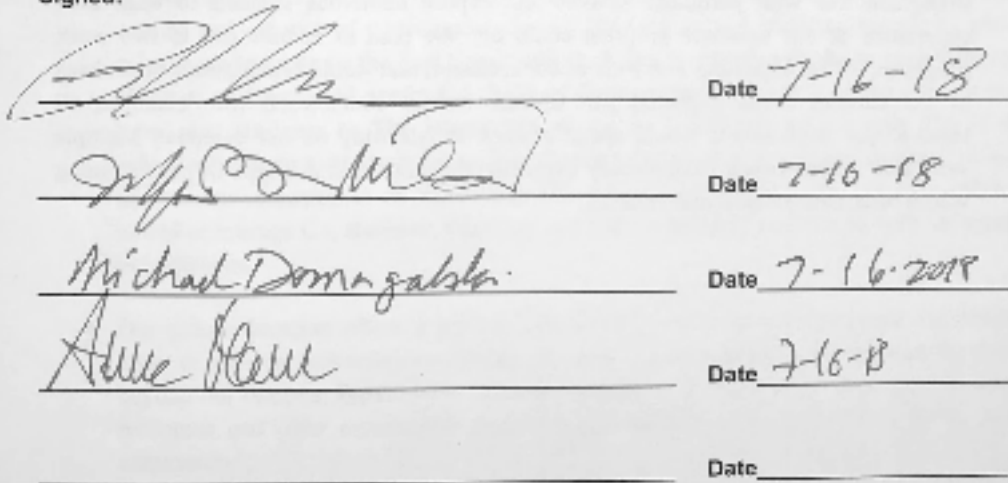 Signed:
Date 7-16-18
Date 7-16-18
Michael Domagalski Date 7-16-2018
Anne Date 7-16-18
Date